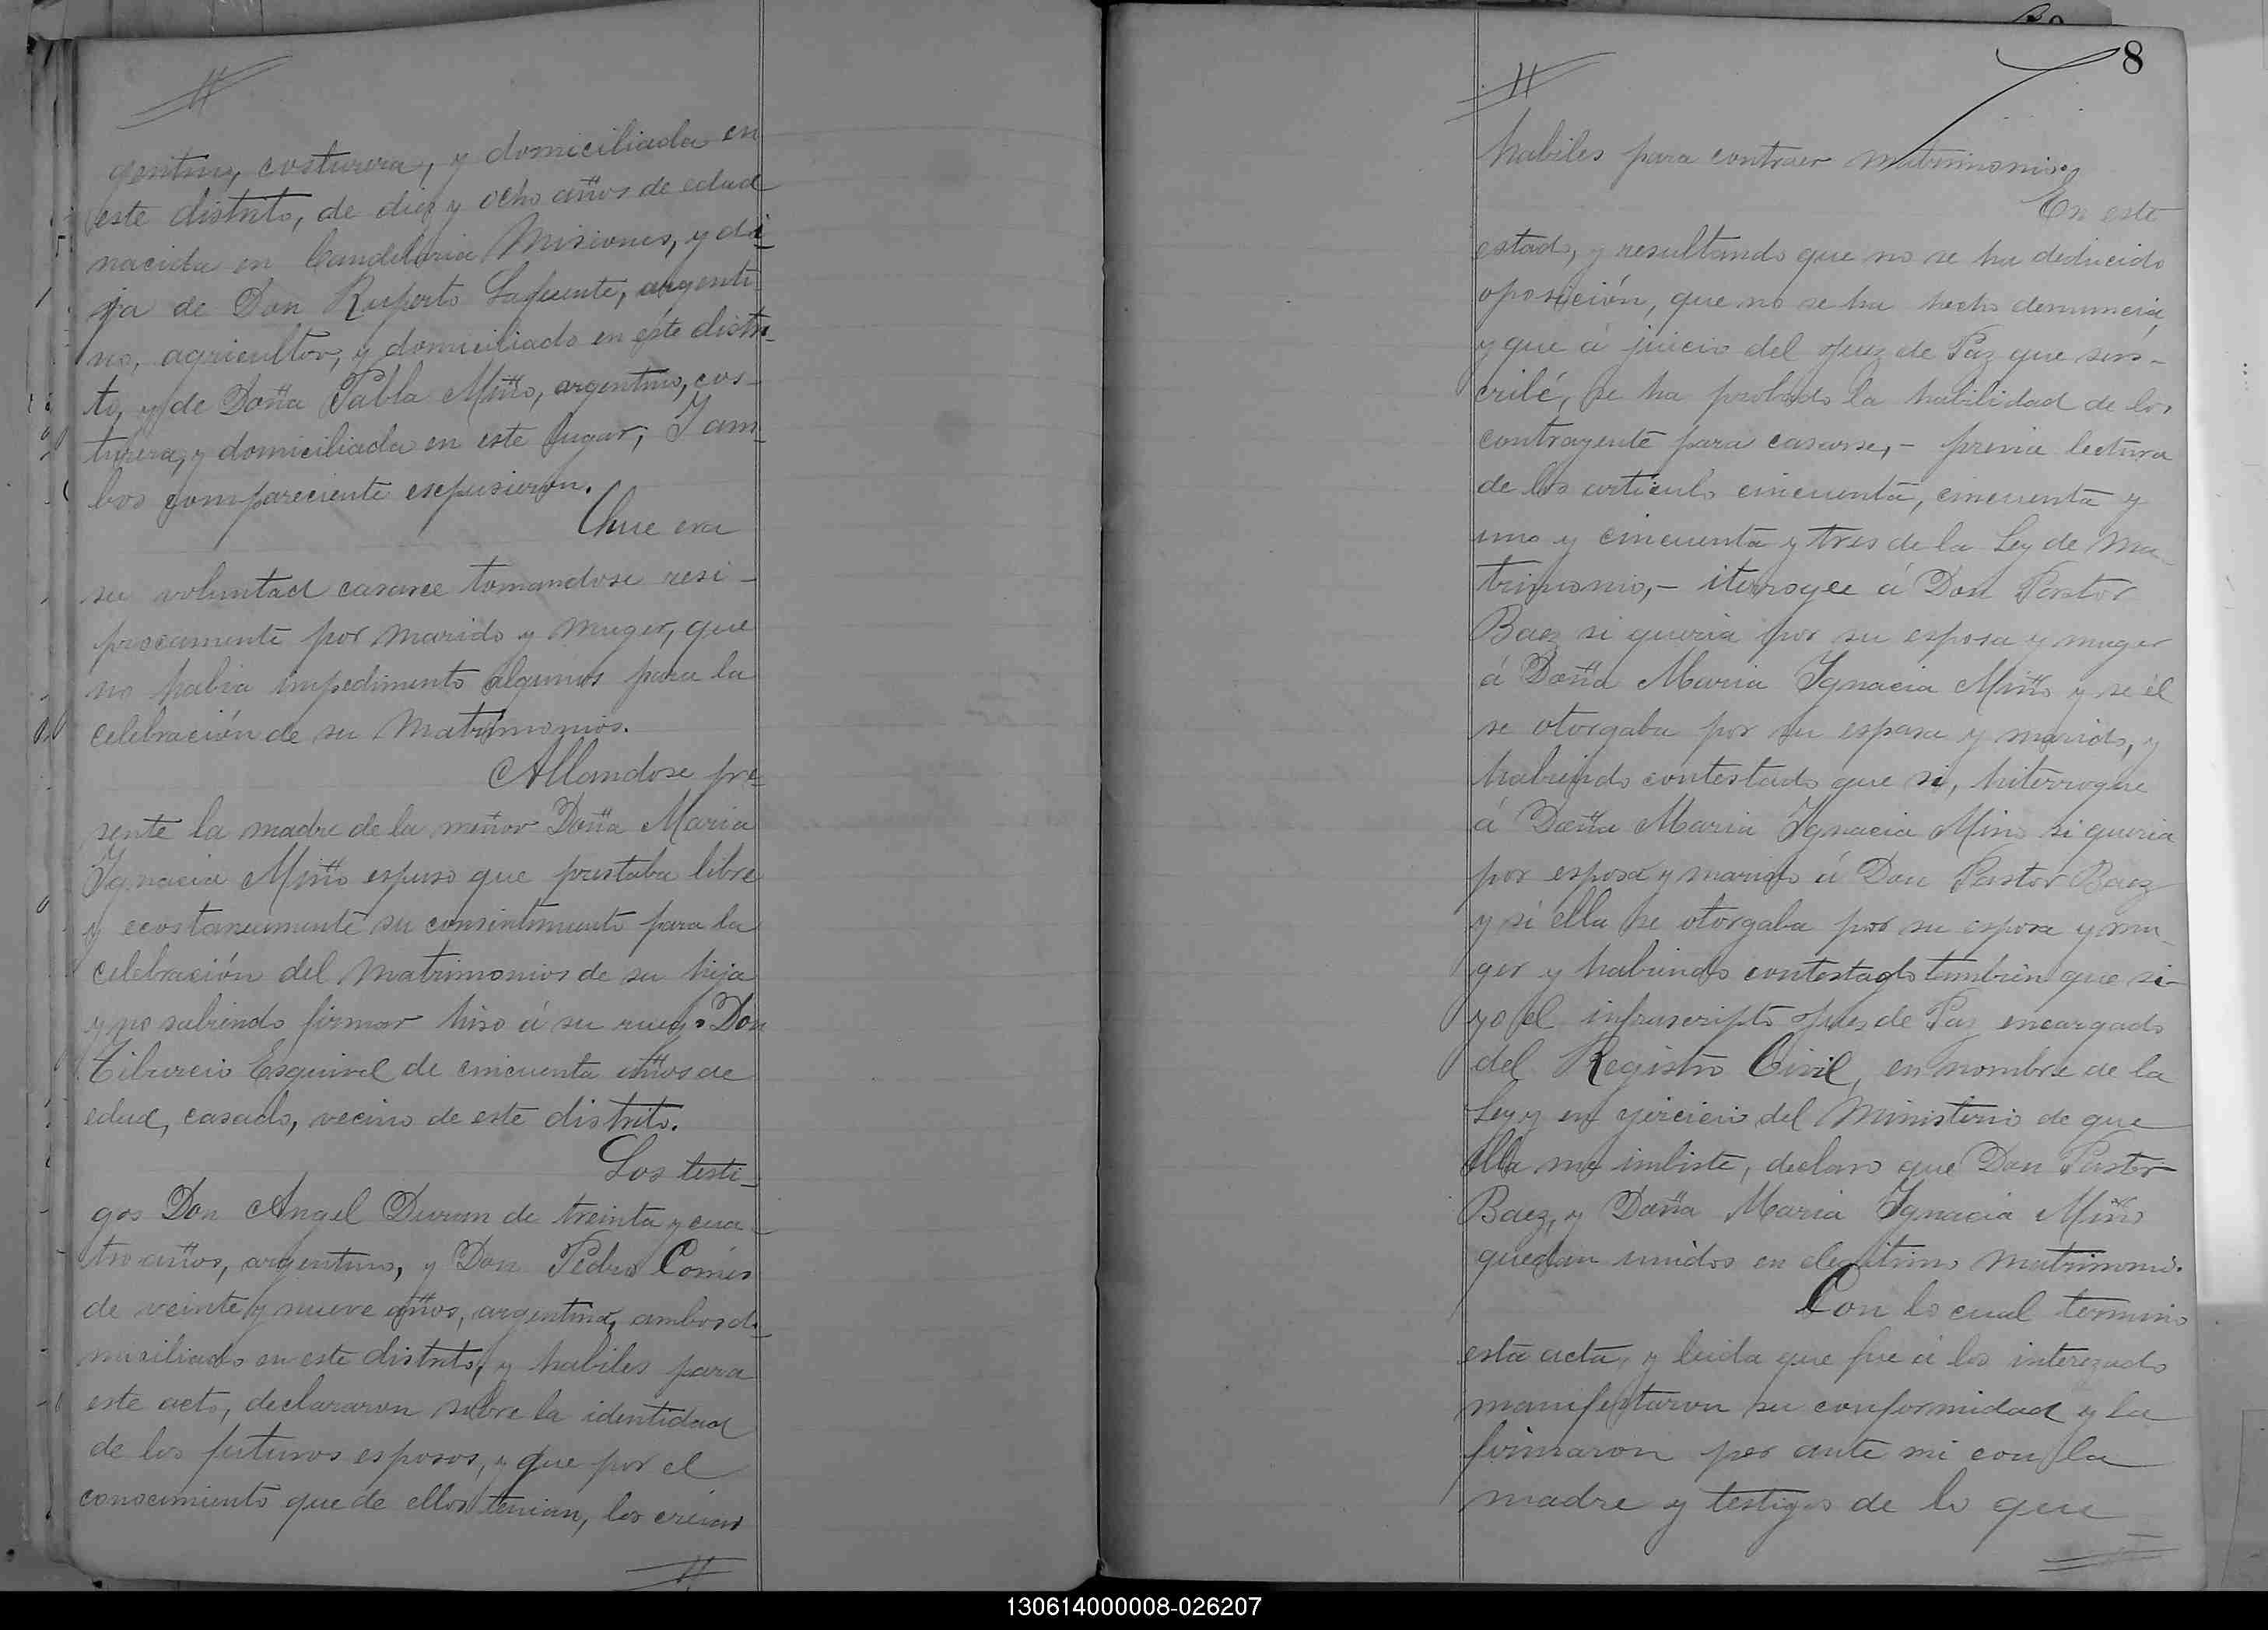 gentina, costurera, y domiciliada en
este distrito, de diez y ocho años de edad
nacida en Candelaria Misiones, y di
ja de Don Ruperto Lafuente, argenti
no, agricultor, y domiciliado en este distri-
to, y de Doña Pabla Miño, argentino, cos-
turera, y domiciliada en este lugar; I am-
bos compareciente espusieron.
Chue era
su voluntad casarce tomandose resi-
procamente por marido y muger, que
no habia impedimento algunos para la
celebración de su Matrimonios.
Allandose pre-
sente la madre de la menor Doña Maria
Ignacia Miño espuso que prestaba libre
y ecostaneamente su consintimiento para la
celebración del Matrimonios de su hija
y no sabiendo firmar hiso á su ruego Don
Tiburcio Esquivel de cincuenta años de
edad, casado, vecino de este distrito.
Los testi-
gos Don Angel Duran de treinta y cua-
tro años, argentino, y Don Pedro Comes
de veinte y nueve años, argentino, ambos do-
miciliado en este distrito, y habiles para
este acto, declararon sobre la identidad
de los futuros esposos, y que por el
conocimiento que de ellos tenian, los creian
8
habiles para contraer matrimonio,
En este
estado, y resultando que no se ha deducido
oposición, que no se ha hecho denuncia,
y que á juicio del Juez de Paz que sus-
cribé, se ha probado la habilidad de los
contrayente para casarse, - previa lectura
de los articulo cincuenta, cincuenta y
uno y cincuenta y tres de la Ley de Ma-
trimonio, - iterroyee á Don Pastor
Baez si queria por su esposa y muger
á Doña Maria Ignacia Miño y se él
se otorgaba por su esposa y marido, y
habiendo contestado que si, hiterrogue
á Doña Maria Ignacia Mino si queria
por esposo y marido á Don Pastor Baez
y si ella se otorgaba por su esposa y mu-
ger y habiendo contestado tambien que si-
yo el infrascripto Jues de Paz encargado
del Registro Civil, en nombre de la
Ley y en ejercicio del Ministerio de que
ella me imbiste, declaro que Don Pastor
Baez, y Doña Maria Ignacia Miño
quedan unidos en elegitimo matrimonio.
Con lo cual termino
esta acta, y leida que fue á los interezado
manifestaron su conformidad y la
firmaron por ante mi con la
madre y testigos de lo que
130614000008-026207